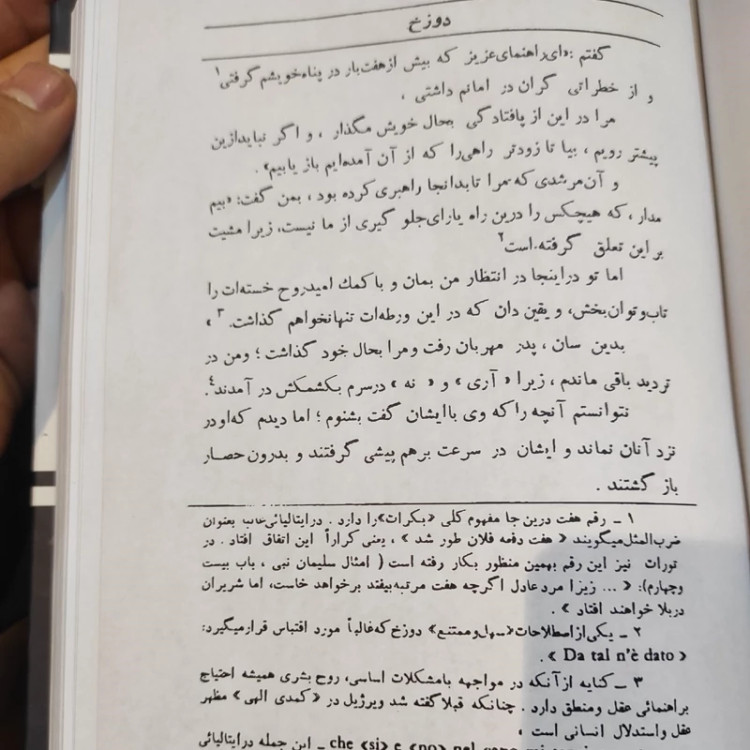 دوزخ
گفتم :«ای راهنمای عزیز که بیش از هفت بار در پناه خویشم گرفتی۱
و از خطراتی گران در امانم داشتی ،
مرا در این از پا افتادگی بحال خویش مگذار ، و اگر نباید ازین
پیشتر رویم ، بیا تا زودتر راهی را که از آن آمده‌ایم باز یابیم» .
و آن مرشدی که مرا تا بدانجا راهبری کرده بود ، بمن گفت: «بیم
مدار ، که هیچکس را درین راه یارای جلو گیری از ما نیست، زیرا مشیت
بر این تعلق گرفته است۲
اما تو در اینجا در انتظار من بمان و با کمك امید روح خسته‌ات را
تاب و توان بخش، و یقین دان که در این ورطه‌ات تنها نخواهم گذاشت. ۳ »
بدین سان ، پدر مهربان رفت و مرا بحال خود گذاشت ؛ و من در
تردید باقی ماندم ، زیرا « آری » و « نه » در سرم بکشمکش در آمدند۴.
نتوانستم آنچه را که وی با ایشان گفت بشنوم ؛ اما دیدم که او در
نزد آنان نماند و ایشان در سرعت برهم پیشی گرفتند و بدرون حصار
باز گشتند .
۱ ـ رقم هفت درین جا مفهوم کلی «بکرات» را دارد . در ایتالیائی غالبا بعنوان
ضرب المثل میگویند « هفت دفعه فلان طور شد » ، یعنی کراراً این اتفاق افتاد . در
تورات نیز این رقم بهمین منظور بکار رفته است ( امثال سلیمان نبی ، باب بیست
وچهارم): « ... زیرا مرد عادل اگرچه هفت مرتبه بیفتد برخواهد خاست، اما شریران
در بلا خواهند افتاد » .
۲ ـ یکی از اصطلاحات «سهل و ممتنع» دوزخ که غالباً مورد اقتباس قرار میگیرد:
« Da tal n'è dato » .
۳ ـ کنایه از آنکه در مواجهه با مشکلات اساسی، روح بشری همیشه احتیاج
براهنمائی عقل و منطق دارد . چنانکه قبلا گفته شد ویرژیل در « کمدی الهی » مظهر
عقل و استدلال انسانی است .
che «si» e «no» nel ـ این جمله در ایتالیائی